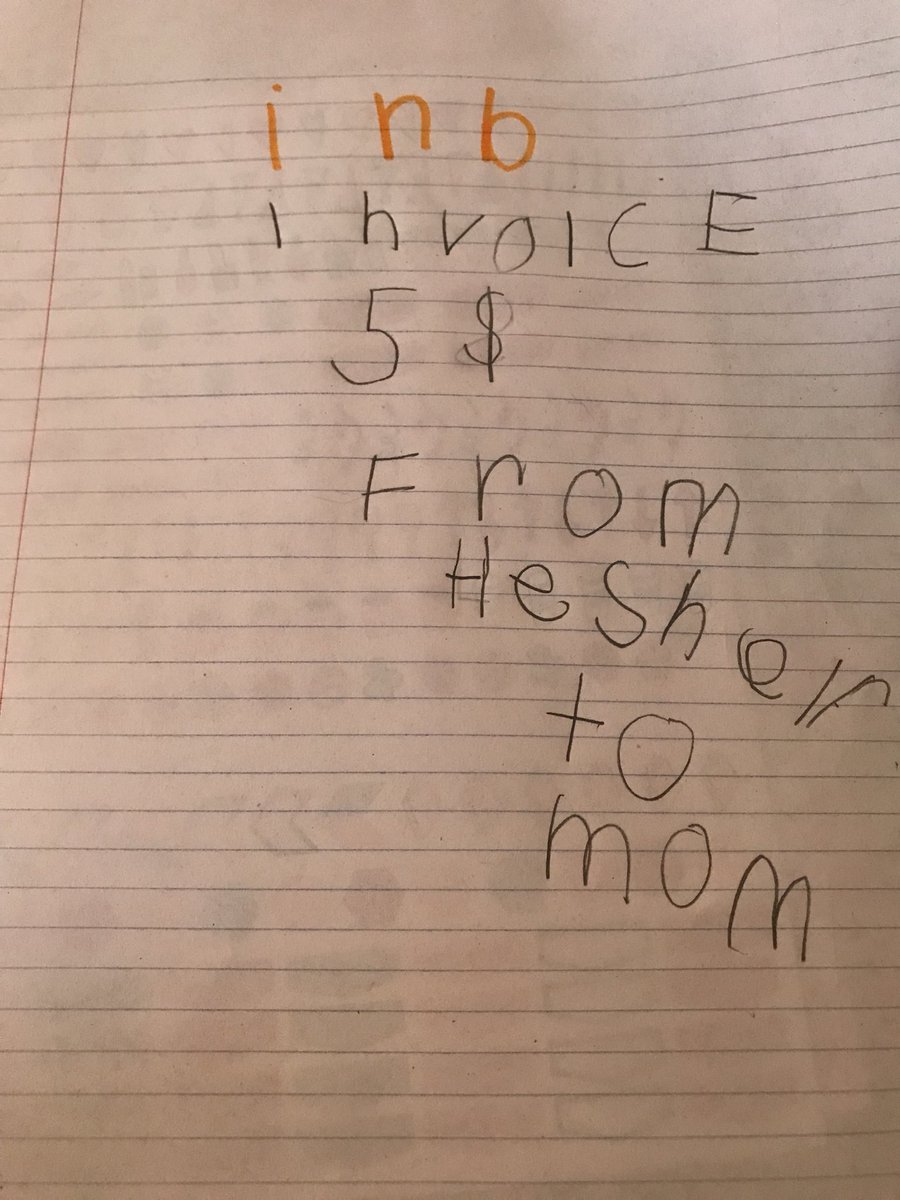 inb
invoiCE
5 $
From
Heshen
to
mom